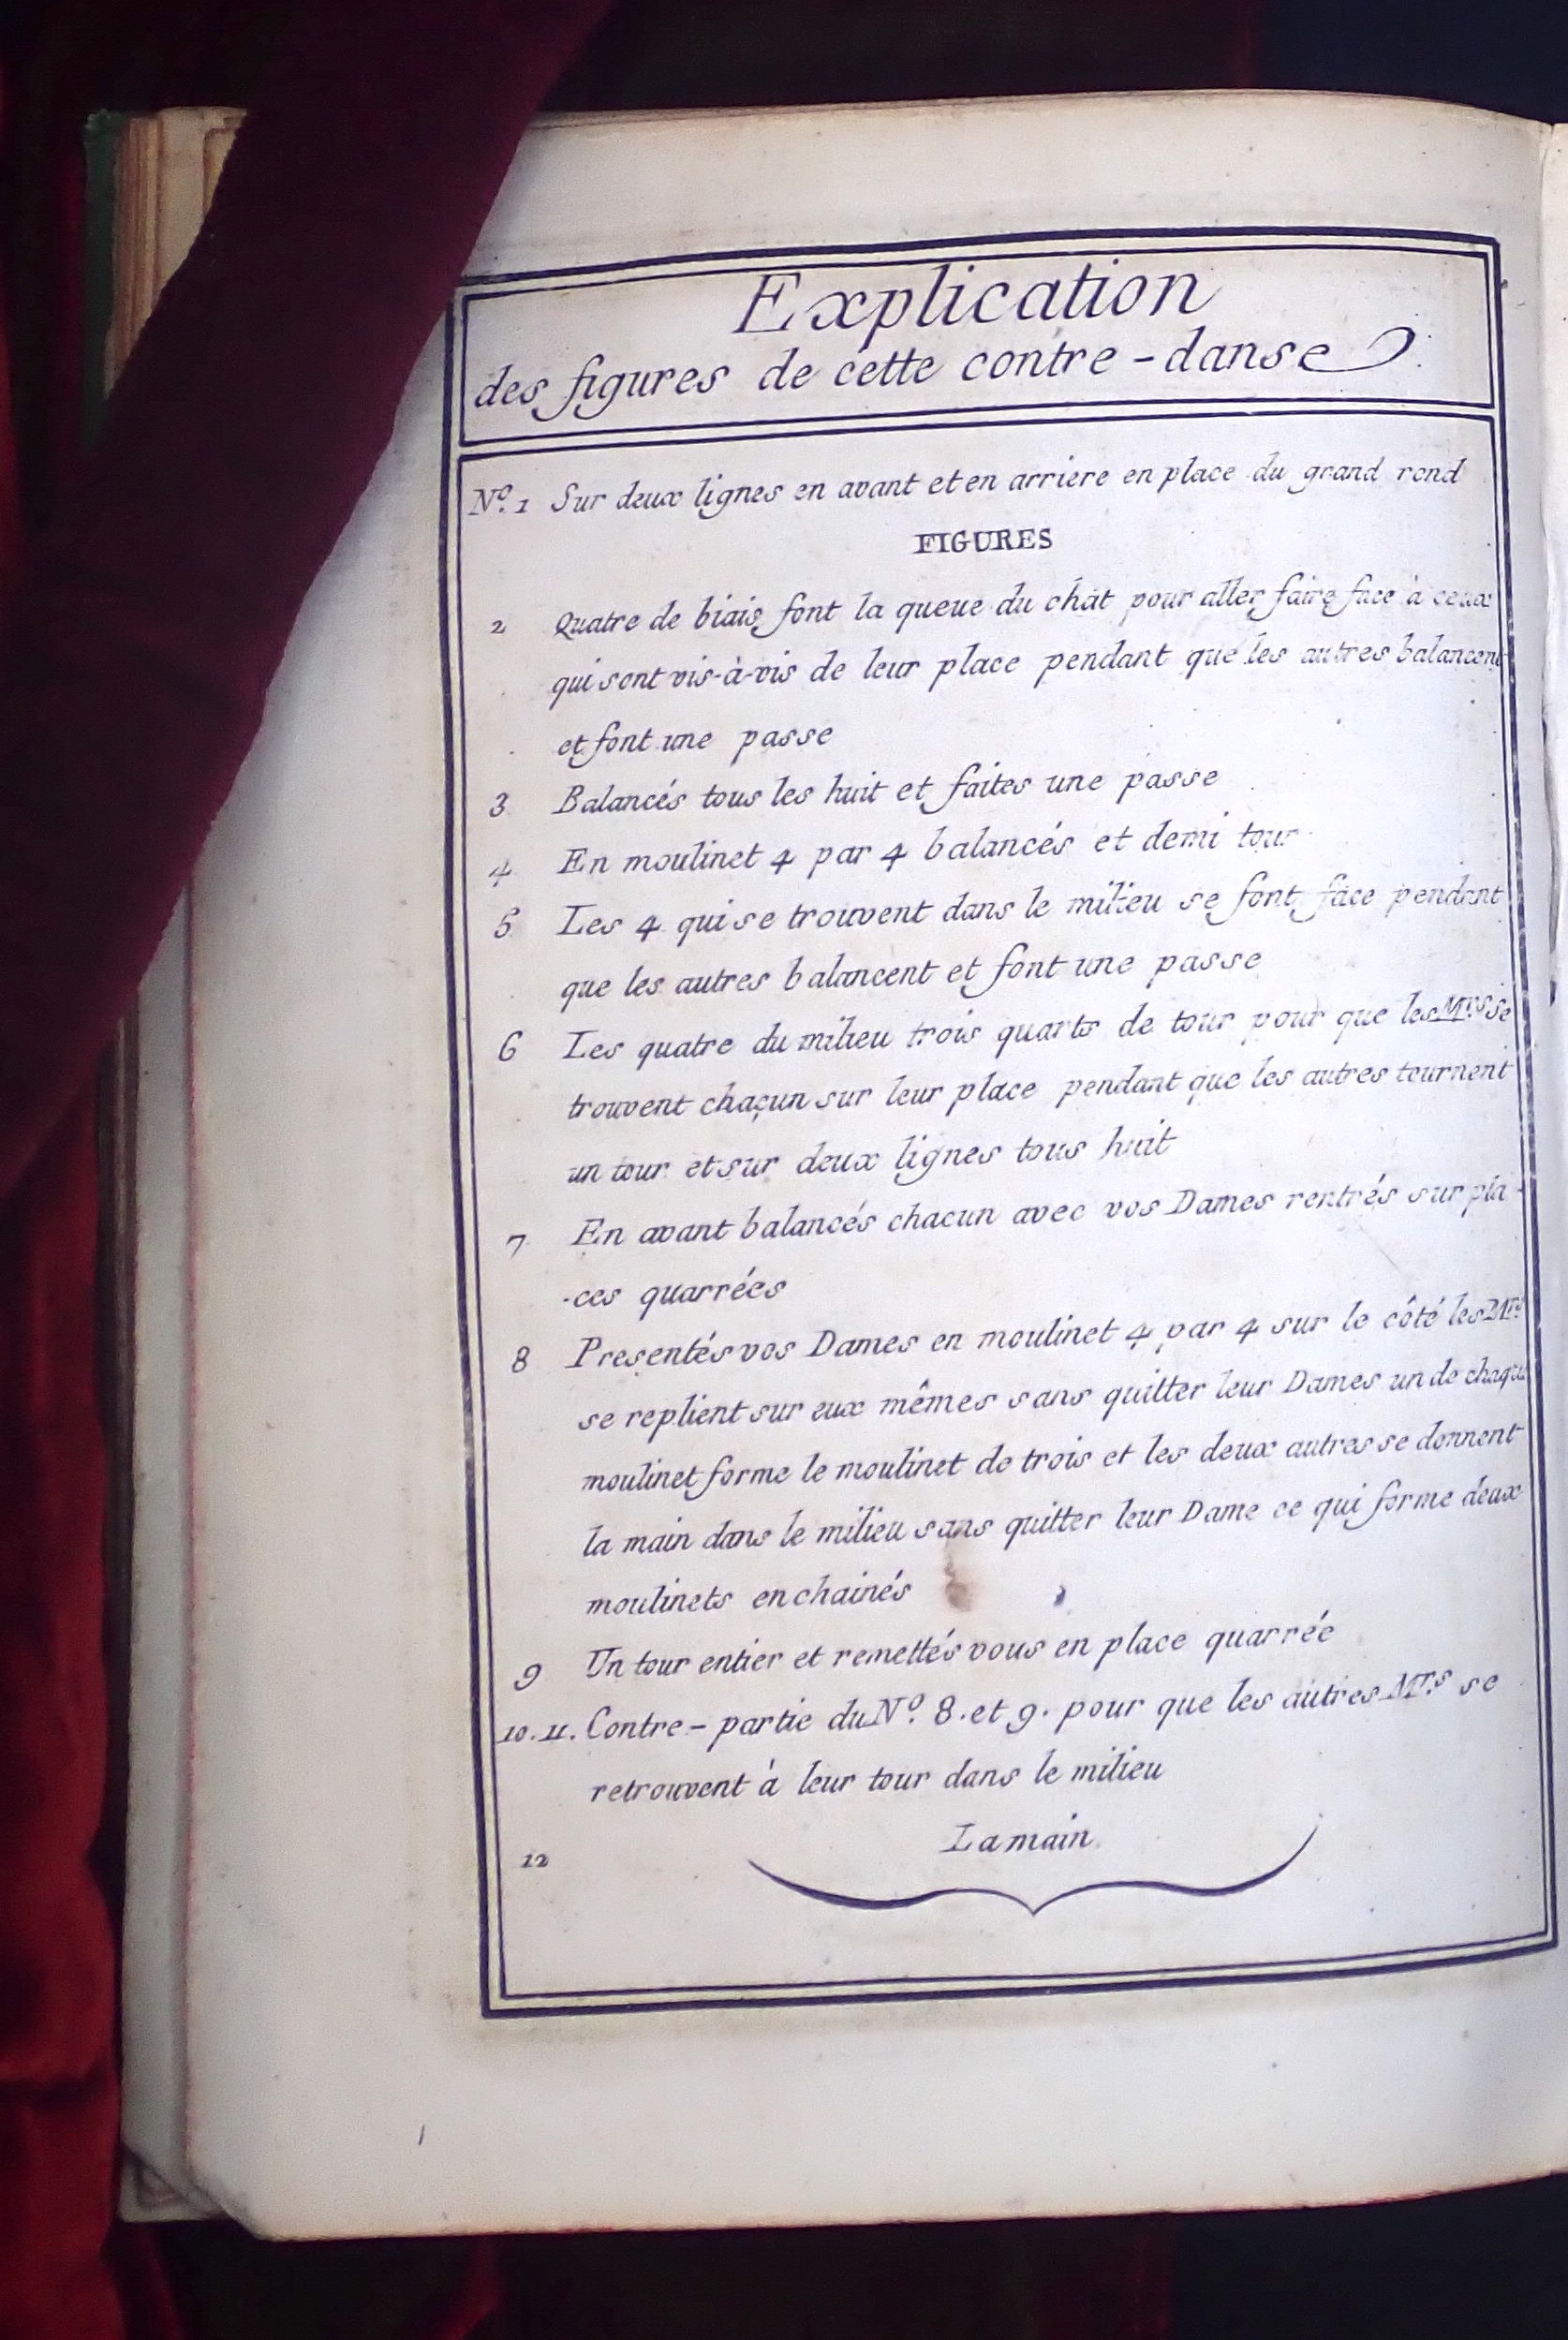 Explication
des figures de cette contre-danse
Nº. 1 Sur deux lignes en avant et en arriere en place du grand rond
FIGURES
2 Quatre de biais font la queue du chat pour aller faire face à ceux
qui sont vis-à-vis de leur place pendant que les autres balancent
et font une passe
3 Balancés tous les huit et faites une passe
4 En moulinet 4 par 4 balancés et demi tour
5 Les 4 qui se trouvent dans le milieu se font face pendant
que les autres balancent et font une passe
6 Les quatre du milieu trois quarts de tour pour que les Mrs. se
trouvent chacun sur leur place pendant que les autres tournent
un tour et sur deux lignes tous huit
7 En avant balancés chacun avec vos Dames rentrés sur pla-
-ces quarrées
8 Presentés vos Dames en moulinet 4 par 4 sur le côté les Mrs.
se replient sur eux mêmes sans quitter leur Dames un de chaque
moulinet forme le moulinet de trois et les deux autres se donnent
la main dans le milieu sans quitter leur Dame ce qui forme deux
moulinets enchainés
9 Un tour entier et remettés vous en place quarrée
10. 11. Contre-partie du Nº. 8. et 9. pour que les autres Mrs. se
retrouvent à leur tour dans le milieu
12 La main